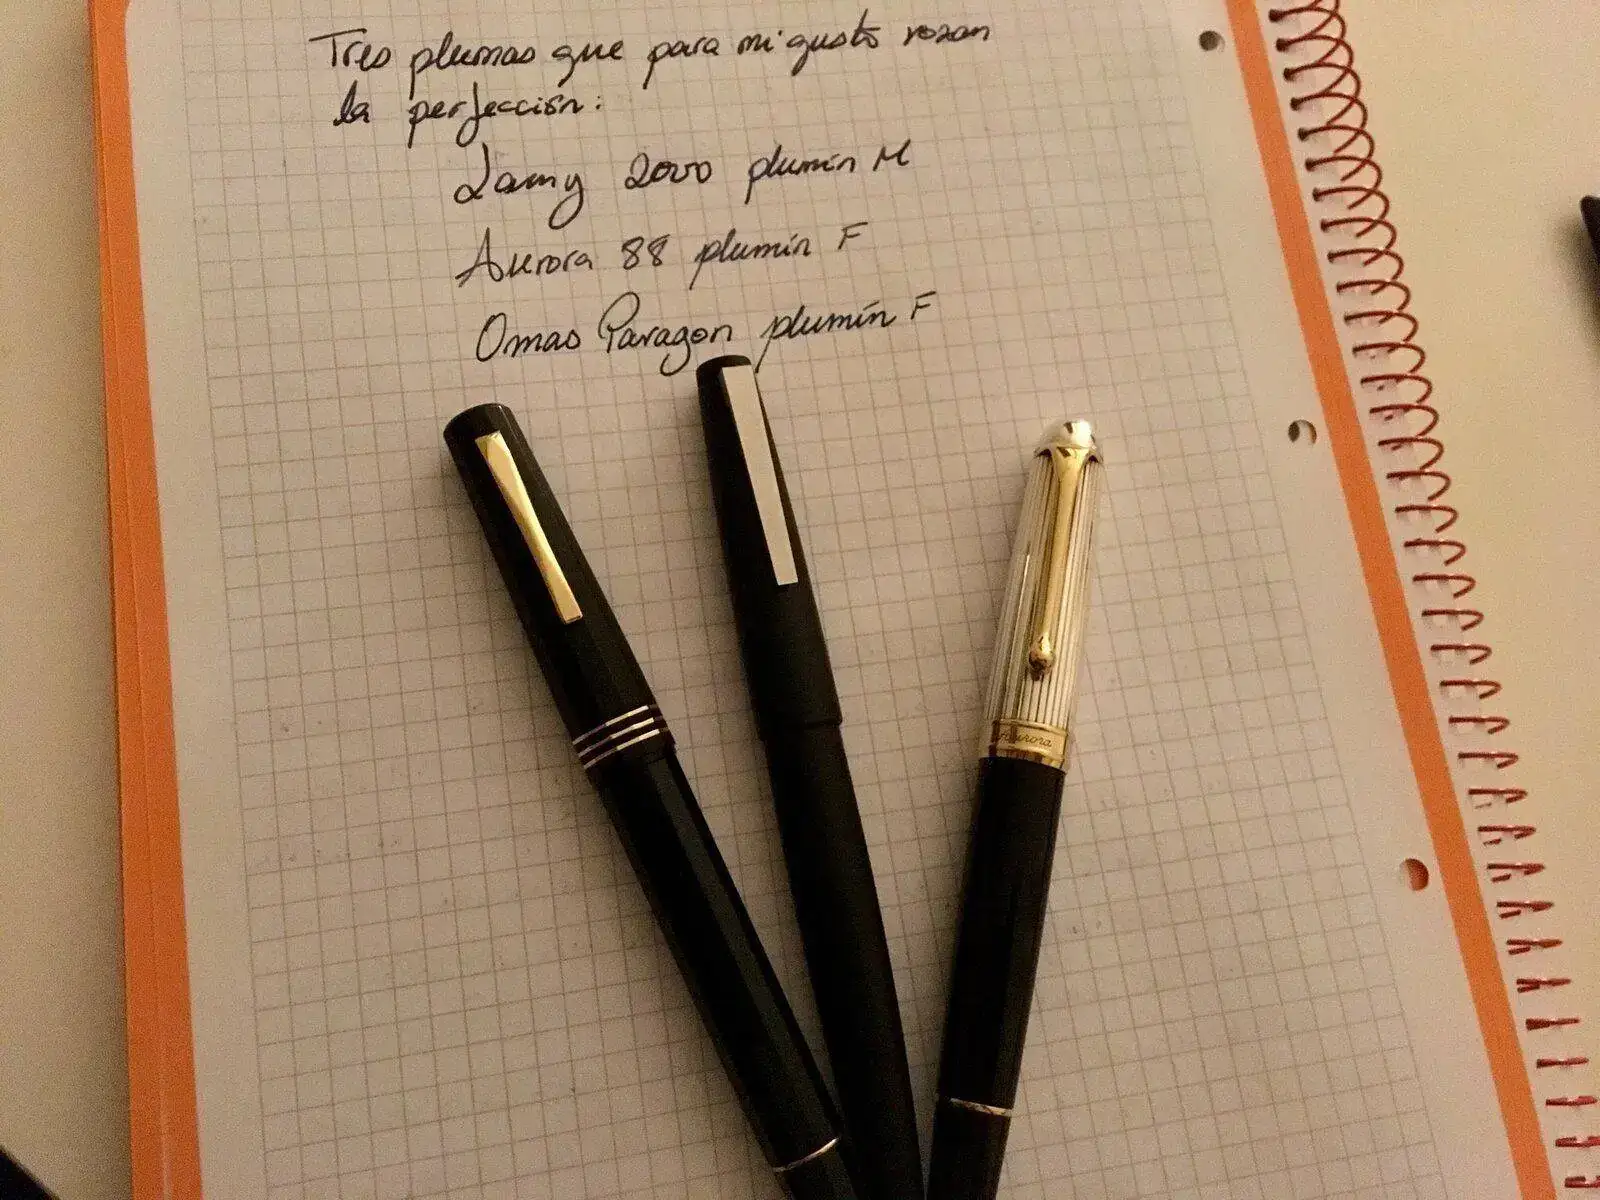 Tres plumas que para mi gusto rozan
la perfección:
Lamy 2000 plumín M
Aurora 88 plumín F
Omas Paragon plumín F
Aurora